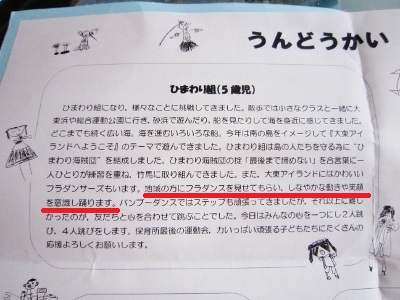 うんどうかい
ひまわり組(5歳児)
ひまわり組になり、様々なことに挑戦してきました。散歩では小さなクラスと一緒に大
東浜や総合運動公園に行き、砂浜で遊んだり、船を見たりして海を身近に感じてきました。
どこまでも続く広い海、海を進むいろいろな船。今年は南の島をイメージして『大東アイ
ランドへようこそ』のテーマで取り組んできました。ひまわり組は島の人たちを守る為に“ひ
まわり海賊団”を結成しました。ひまわり海賊団の掟「最後まで諦めない」を合言葉に一
人ひとりが練習をし、竹馬に取り組んできました。また、大東アイランドにはかわいい
フラダンサーズもいます。地域の方にフラダンスを見せてもらい、しなやかな動きや笑顔
を意識し踊ります。バンブーダンスではステップも頑張ってきましたが、それ以上に難し
かったのが、友だちと心を合わせて跳ぶことでした。今日はみんなの心を一つにし2人跳
び、4人跳びをします。保育所最後の運動会、力いっぱい頑張る子どもたちにたくさんの
応援よろしくお願いします。